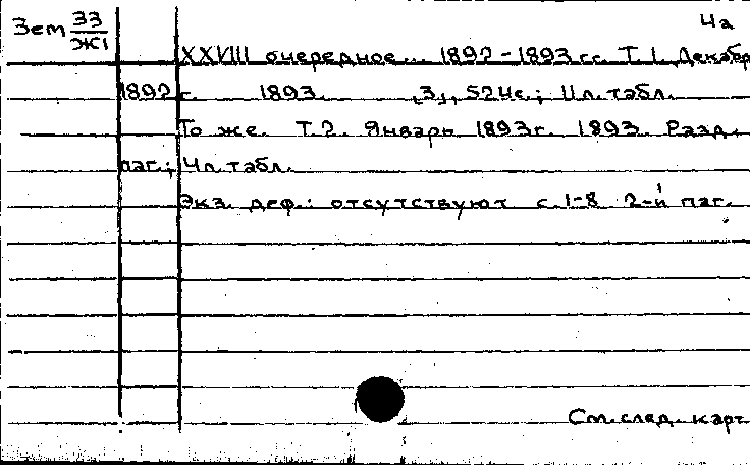 Зем 33/Ж1
4а
XXVIII очередное... 1892-1893 гг. Т. 1. Декабр
1892 г. 1893. [3], 524с.; 11л. табл.
То же. Т.2. Январь 1893г. 1893. Разд.
паг.; 4л. табл.
Экз. деф.: отсутствуют с. 1-8 2-й паг.
См. след. карт.